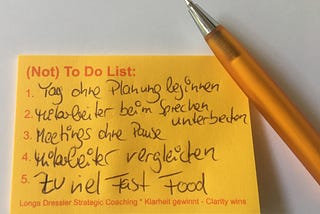 (Not) To Do List:
1. Tag ohne Planung beginnen
2. Mitarbeiter beim Sprechen
unterbrechen
3. Meetings ohne Pause
4. Mitarbeiter vergleichen
5. Zu viel Fast Food
Longa Dressler Strategic Coaching * Klarheit gewinnt - Clarity wins